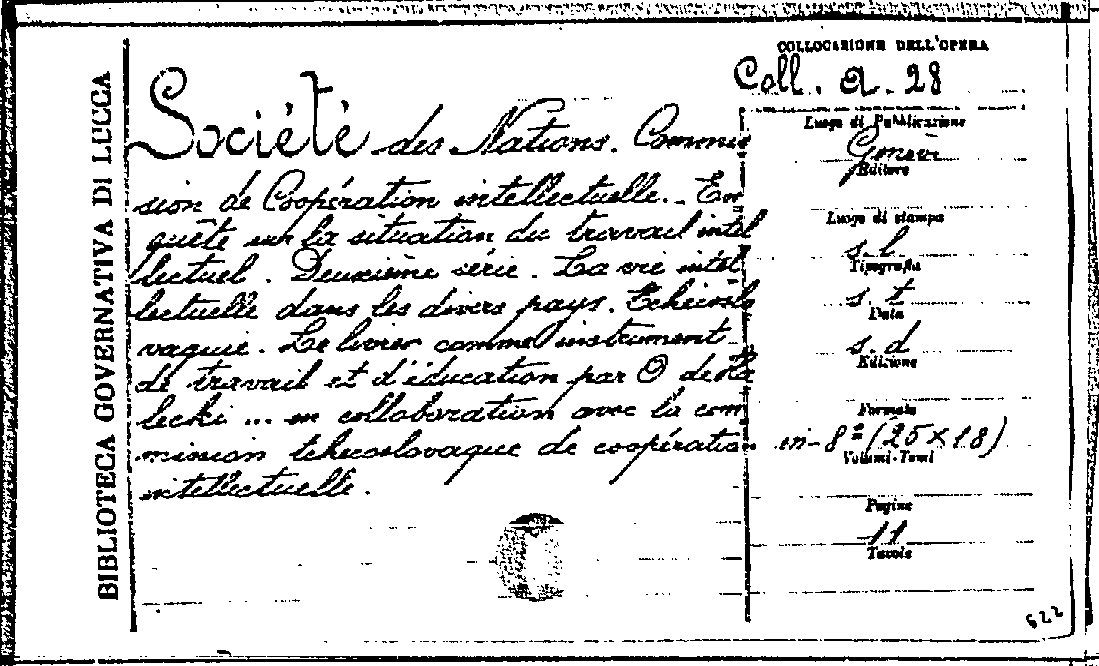 BIBLIOTECA GOVERNATIVA DI LUCCA
Société des Nations. Commis
sion de Coopération intellectuelle. - En
quête sur la situation du travail intel
lectuel. Deuxième série. La vie intel
lectuelle dans les divers pays. Tchécoslo
vaquie. Le livre comme instrument
de travail et d'éducation par O de Ha
lecki ... en collaboration avec la com
mission tchécoslovaque de coopération
intellectuelle.
COLLOCAZIONE DELL'OPERA
Coll. a. 28
Luogo di Pubblicazione
Editore
Luogo di stampa
s. l.
Tipografia
s. t
Data
s. d
Edizione
Formato
in-8º (25×18)
Volumi-Tomi
Pagine
11
Tavole
622